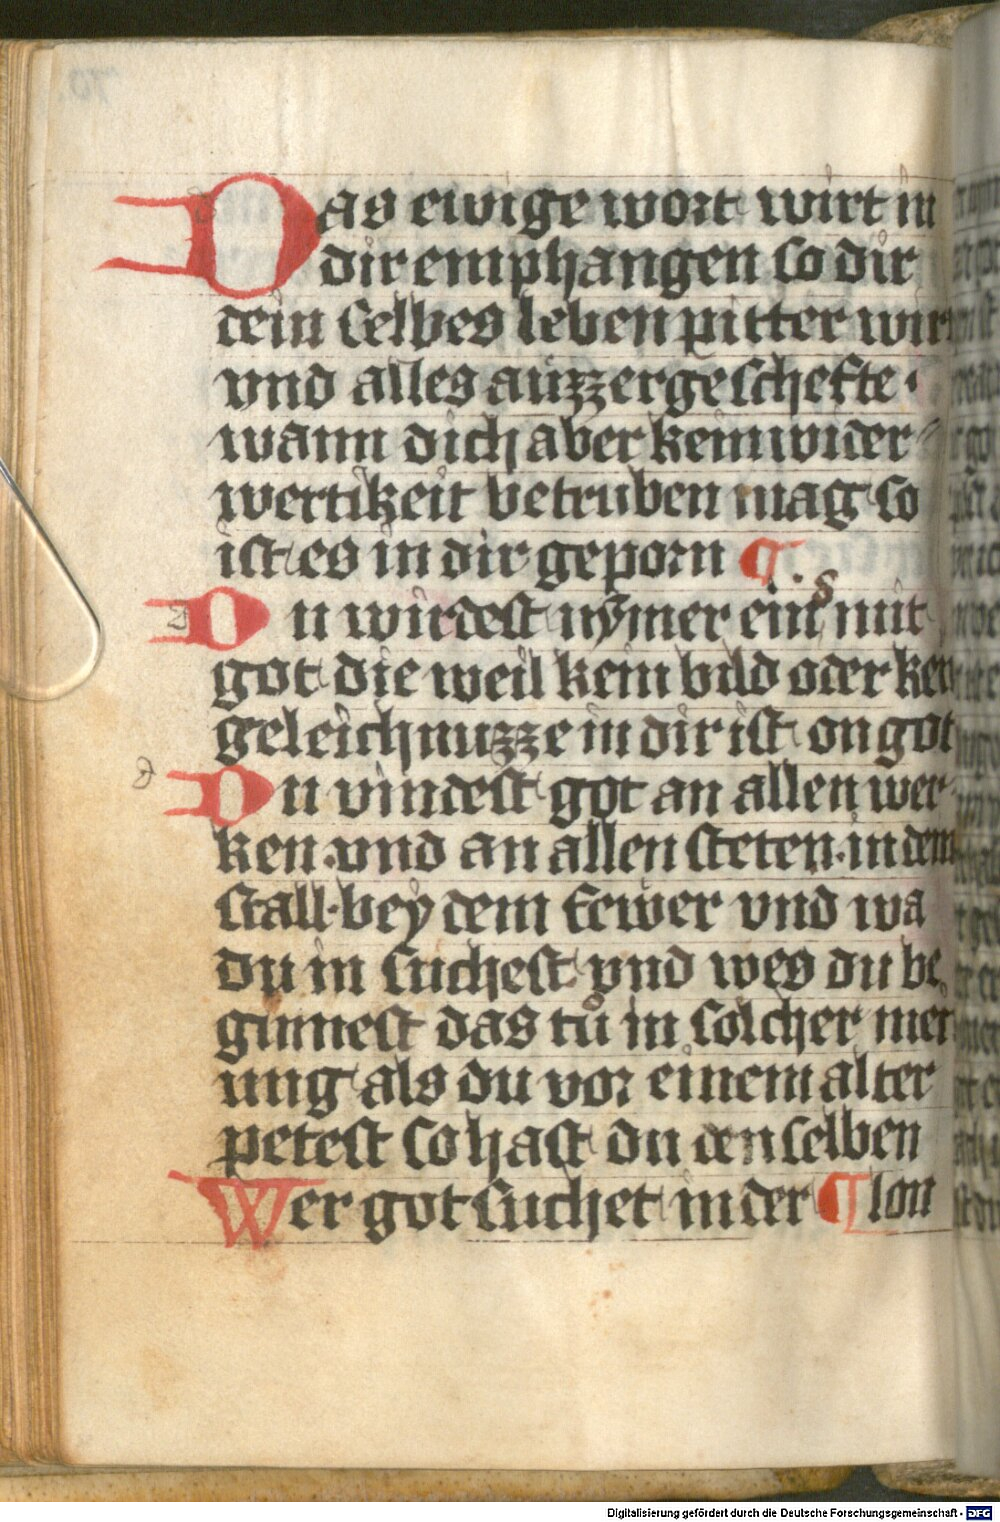 Das ewige wort wirt in
dir emphangen so dir
dein selbes leben pitter wirt
vnd alles auzzergeschefte·
wann dich aber kein wider
wertikeit betruben mag so
ist es in dir geporn ¶
Du wirdest nymer eins mit
got die weil kein bild oder kein
geleichnuzze in dir ist on got
Du vindest got an allen wer
ken·vnd an allen steten·in dem
stall·bey dem fewer vnd wa
du in suchest vnd wes du be
ginnest das tů in solcher mei
nung als du vor einem alter
petest so hast du den selben
Wer got suchet in der ¶ lon
Digitalisierung gefördert durch die Deutsche Forschungsgemeinschaft - DFG